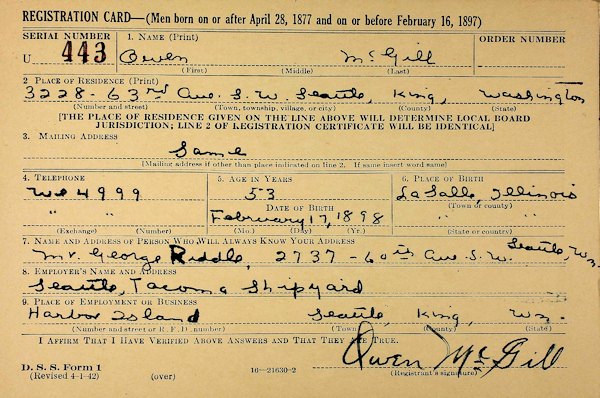 REGISTRATION CARD—(Men born on or after April 28, 1877 and on or before February 16, 1897)
SERIAL NUMBER
1. NAME (Print)
ORDER NUMBER
U 443
Owen McGill
(First) (Middle) (Last)
2 PLACE OF RESIDENCE (Print)
3228-63rd Ave. S.W. Seattle, King, Washington
(Number and street) (Town, township, village, or city) (County) (State)
[THE PLACE OF RESIDENCE GIVEN ON THE LINE ABOVE WILL DETERMINE LOCAL BOARD
JURISDICTION; LINE 2 OF REGISTRATION CERTIFICATE WILL BE IDENTICAL]
3. MAILING ADDRESS
Same
[Mailing address if other than place indicated on line 2. If same insert word same]
4. TELEPHONE
We 4999
" "
(Exchange) (Number)
5. AGE IN YEARS
53
DATE OF BIRTH
February 17, 1898
(Mo.) (Day) (Yr.)
6. PLACE OF BIRTH
LaSalle, Illinois
(Town or county)
" "
(State or country)
7. NAME AND ADDRESS OF PERSON WHO WILL ALWAYS KNOW YOUR ADDRESS
Mr. George Riddle, 2737-60th Ave S.W. Seattle, Wn.
8. EMPLOYER'S NAME AND ADDRESS
Seattle, Tacoma Shipyard
9. PLACE OF EMPLOYMENT OR BUSINESS
Harbor Island Seattle, King, Wn.
(Number and street or R. F. D. number) (Town) (County) (State)
I AFFIRM THAT I HAVE VERIFIED ABOVE ANSWERS AND THAT THEY ARE TRUE.
Owen McGill
D. S. S. Form 1
(Revised 4-1-42) (over) 16—21630-2 (Registrant's signature)